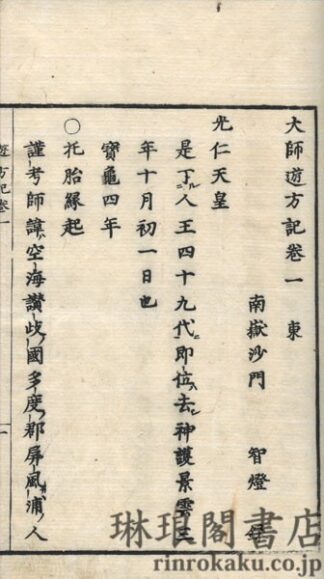 大師遊方記卷一　東
南嶽沙門　智燈
光仁天皇
是丁人王四十九代即位去神護景雲三
年十月初一日也
寶龜四年
○托胎縁起
謹考師諱空海讃歧國多度郡屏風浦人
遊方記卷一
一
琳琅閣書店
rinrokaku.co.jp